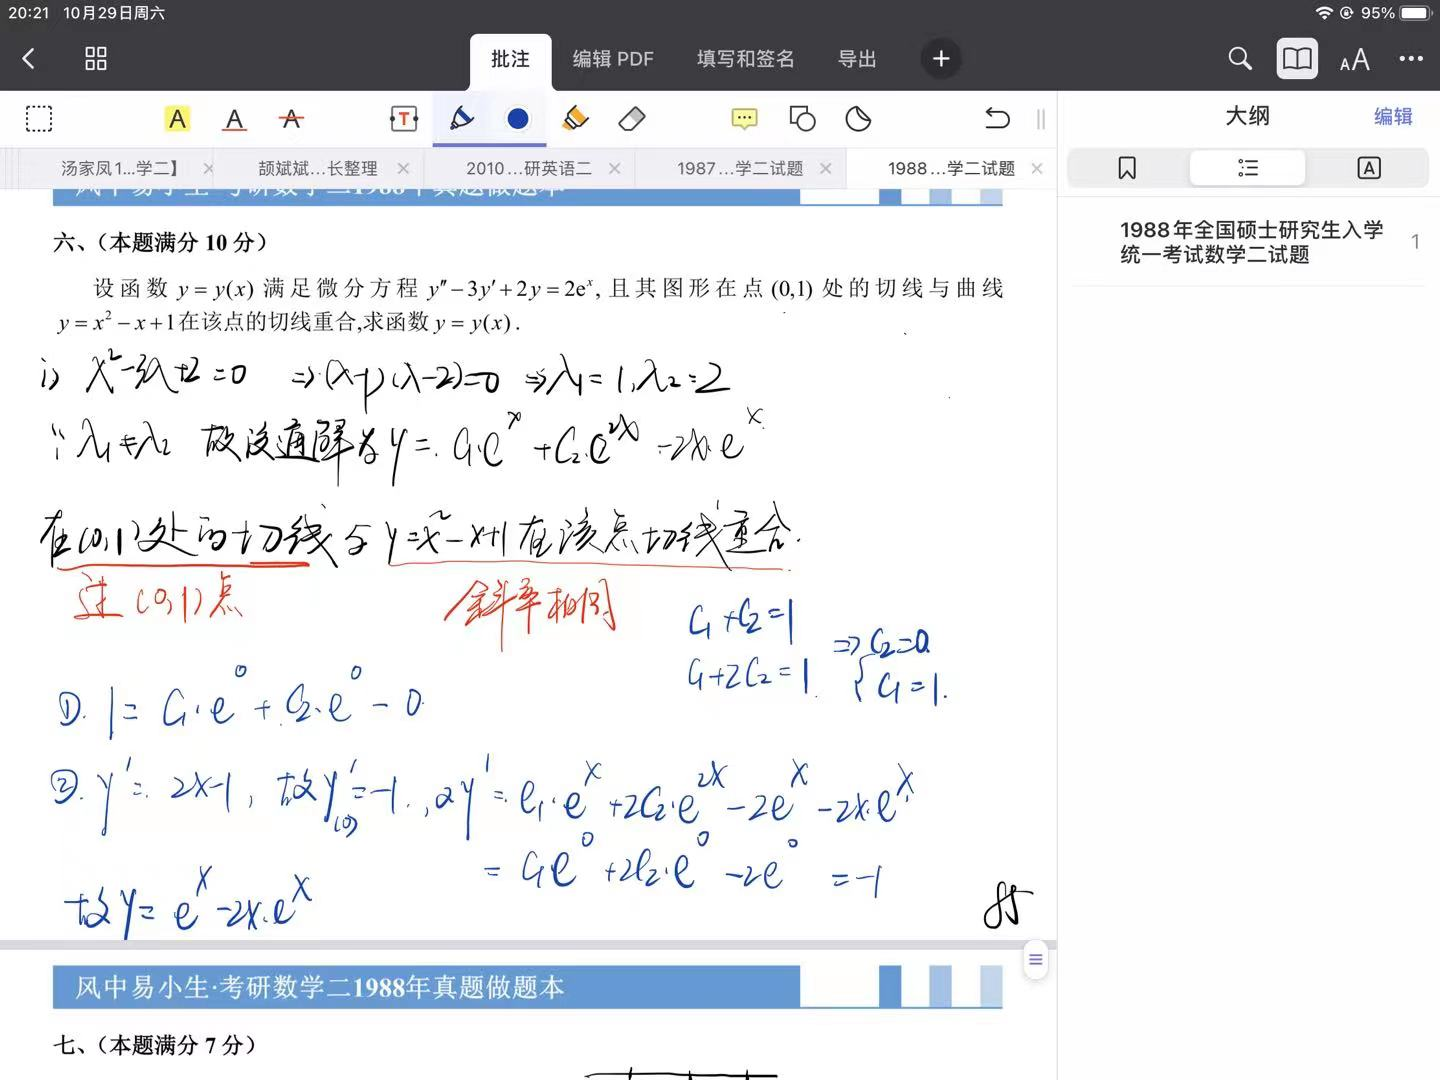 20:21 10月29日周六 95%
批注 编辑 PDF 填写和签名 导出
大纲 编辑
汤家凤1...学二】 颉斌斌...长整理 2010...研英语二 1987...学二试题 1988...学二试题
1988年全国硕士研究生入学统一考试数学二试题 1
风中易小生·考研数学二1988年真题做题本
六、（本题满分 10 分）
设函数 y = y(x) 满足微分方程 y″−3y′+2y=2eˣ, 且其图形在点 (0,1) 处的切线与曲线
y = x² − x +1在该点的切线重合,求函数 y = y(x) .
i) λ²-3λ+2=0 ⇒(λ-1)(λ-2)=0 ⇒λ₁=1,λ₂=2
∵λ₁≠λ₂ 故设通解为 y=C₁·eˣ+C₂·e²ˣ-2x·eˣ
在(0,1)处的切线与y=x²-x+1在该点切线重合.
过(0,1)点 斜率相同
C₁+C₂=1
C₁+2C₂=1. ⇒{C₂=0. C₁=1.
①. 1=C₁·e⁰+C₂·e⁰-0
②. y′=2x-1, 故y′(0)=-1., 又y′=C₁·eˣ+2C₂·e²ˣ-2eˣ-2x·eˣ
=C₁e⁰+2C₂·e⁰-2e⁰=-1
故y=eˣ-2x·eˣ
风中易小生·考研数学二1988年真题做题本
七、（本题满分 7 分）